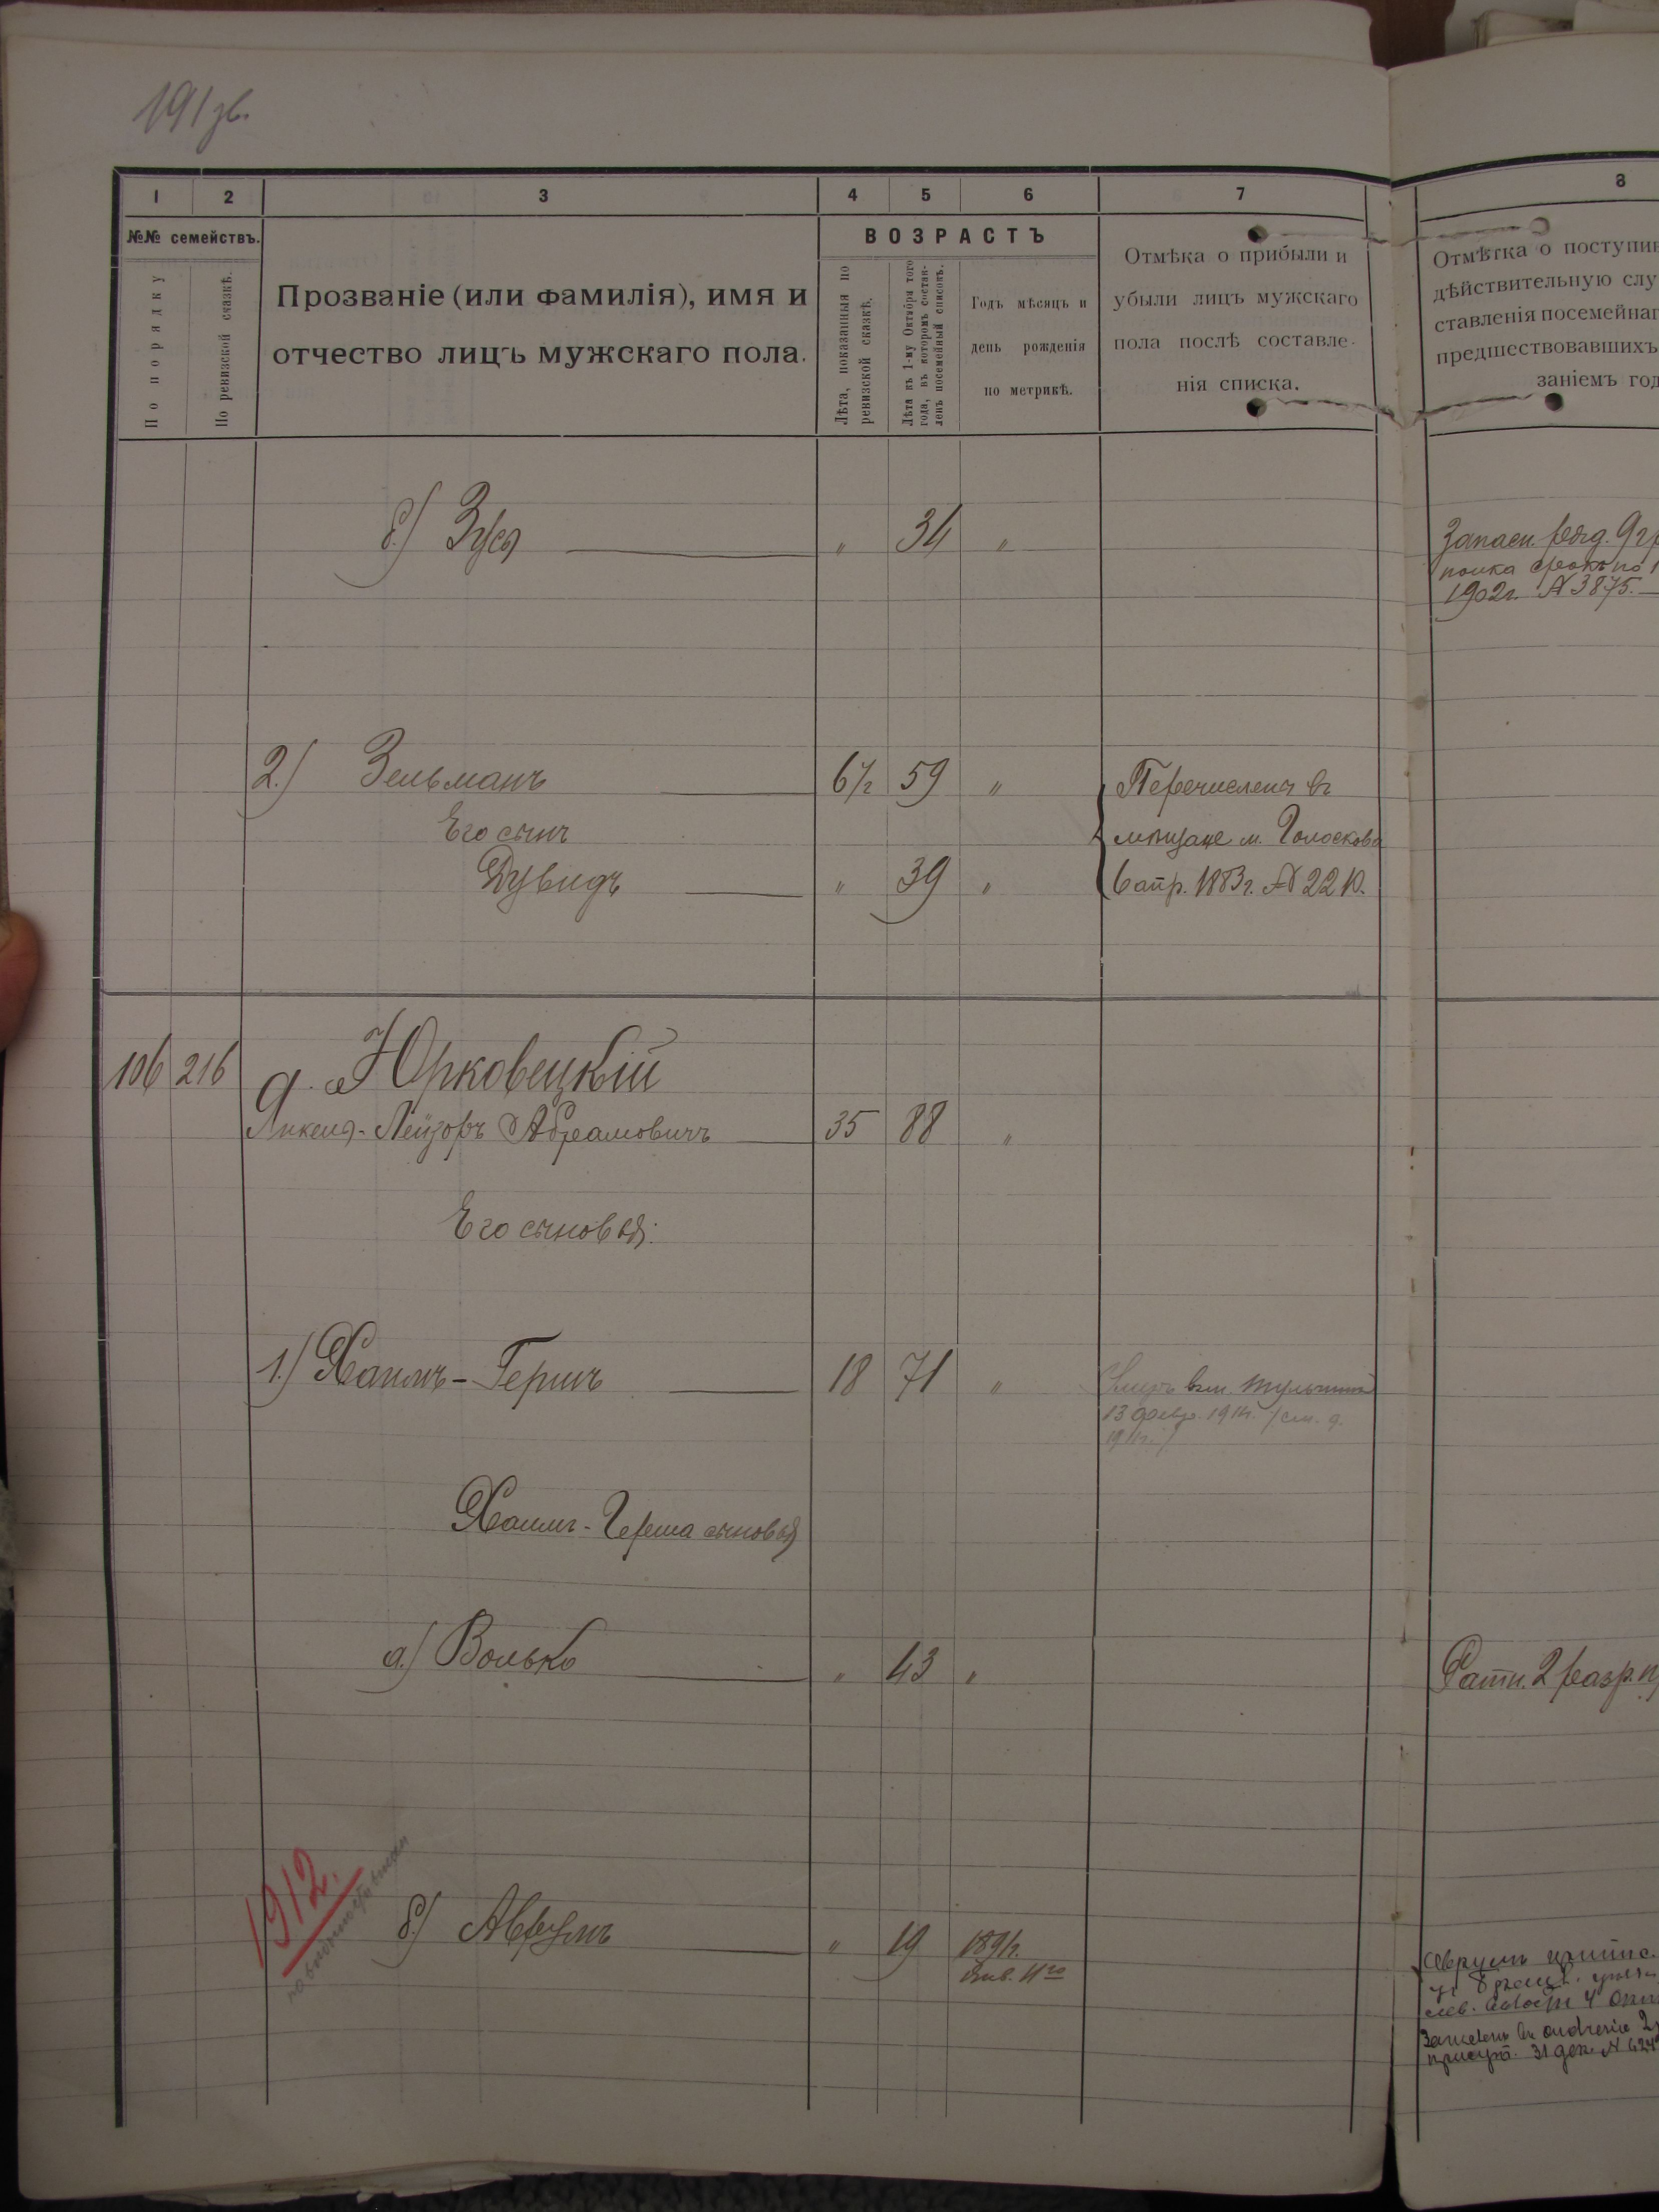 191 зв.
1 2 3 4 5 6 7 8
№№ семействъ.
По порядку
По ревизской сказкѣ.
Прозваніе (или фамилія), имя и
отчество лицъ мужскаго пола.
ВОЗРАСТЪ
Лѣта, показанныя по
ревизской сказкѣ.
Лѣта къ 1-му Октября того
года, въ которомъ состав-
ленъ посемейный списокъ.
Годъ мѣсяцъ и
день рожденія
по метрикѣ.
Отмѣка о прибыли и
убыли лицъ мужскаго
пола послѣ составле-
нія списка.
Отмѣтка о поступи
дѣйствительную слу
ставленія посемейнаг
предшествовавшихъ
заніемъ год
б.) Зуся " 34 "
Запасн. ряд. 9
полка срокъ по 1
1902г. № 3875.
2.) Зельманъ 6½ 59 "
Его сынъ
Дувидъ " 39 "
Перечислены въ
мѣщане м. Голоскова
6 апр. 1883г. № 2210.
106 216 Юрковецкій
Янкель-Лейзоръ Абрамовичъ 35 88 "
Его сыновья:
1.) Хаимъ-Гершъ 18 71 "
13 февр. 191 г. /см. д.
Хаимъ-Герша сыновья
а.) Волько " 43 "
Ратн. 2 разр.
1912.
б.) Аврумъ " 19 1891г.
Янв. 11го
Аврумъ
31 дек. №